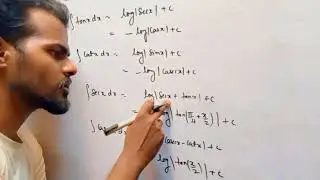 ∫tanx dx = log|secx| + c
= -log|cosx| + c
∫cotx dx = log|sinx| + c
= -log|cosecx| + c
∫secx dx = log|secx + tanx| + c
|tan(π/4 + x/2)| + c
cosecx - cotx| + c
log|tan(x/2)| + c